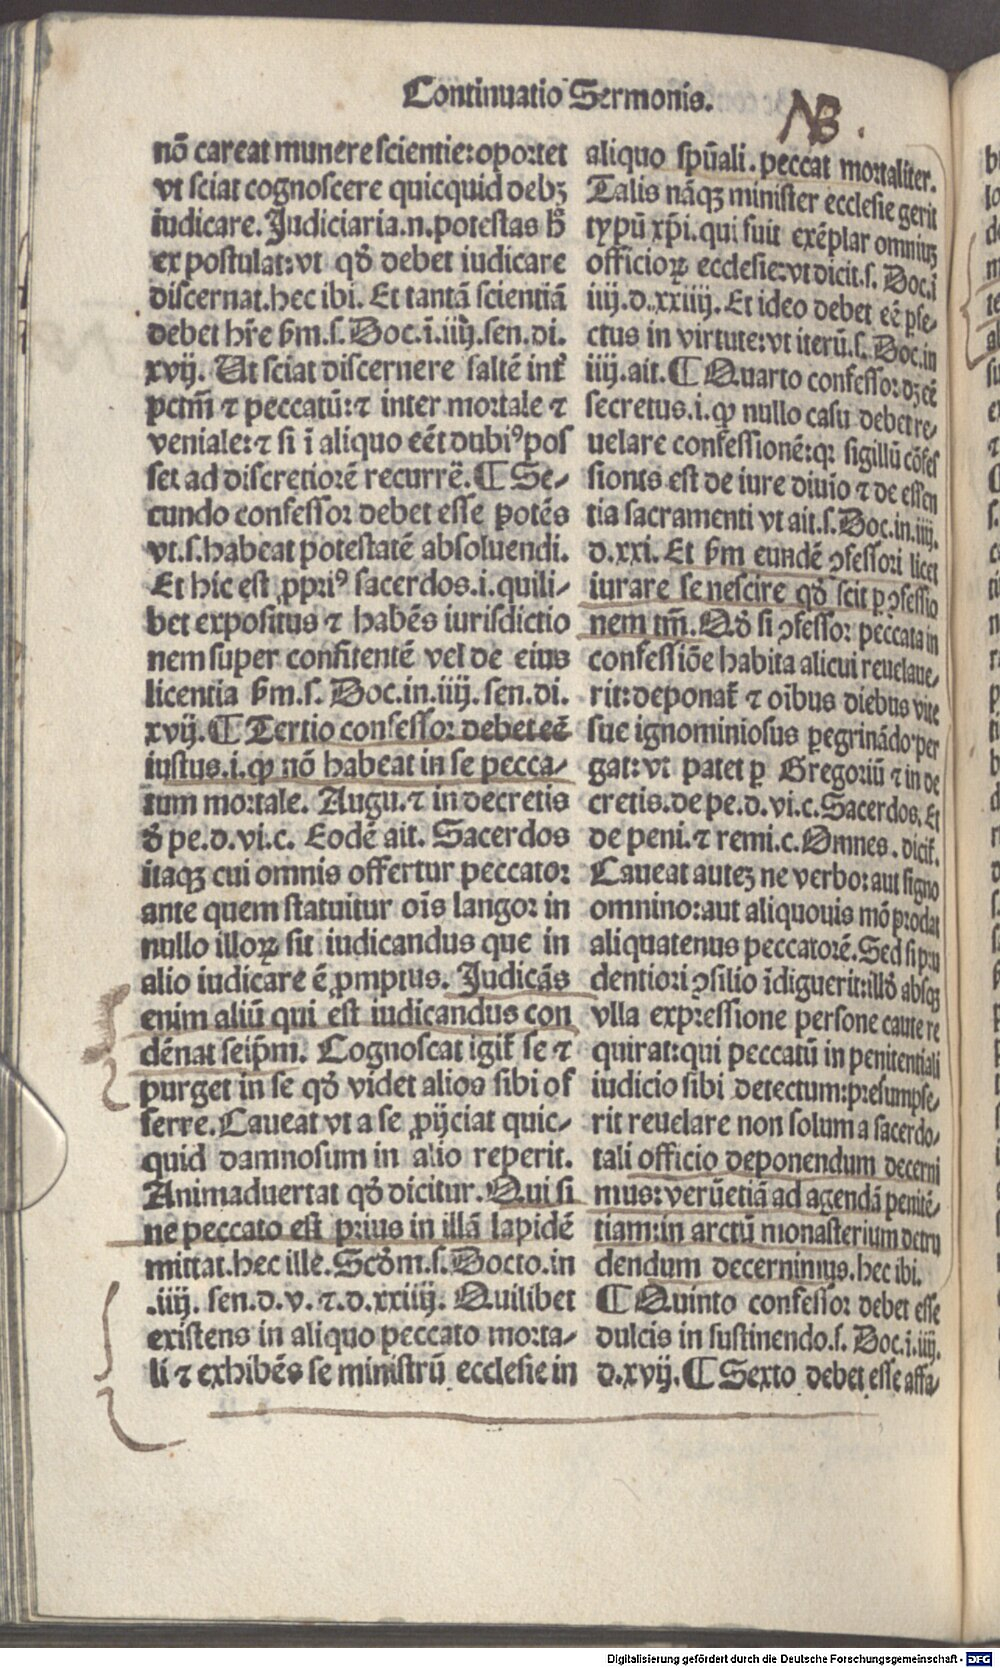 Continuatio Sermonis.
NB.
nō careat munere scientie: oportet
vt sciat cognoscere quicquid debꝫ
iudicare. Judiciaria .n. potestas h̄
expostulat: vt qđ debet iudicare
discernat. hec ibi. Et tantā scientiā
debet hr̄e ẜm .s. Doc. ī .iiij. sen. di.
xvij. Ut sciat discernere saltē int̄
pctm̄ ⁊ peccatū: ⁊ inter mortale ⁊
veniale: ⁊ si ī aliquo eēt dubiꝰ pos
set ad discretiorē recurrē. ¶ Se-
cundo confessor debet esse potēs
vt .s. habeat potestatē absoluendi.
Et hic est ꝓpriꝰ sacerdos .i. quili-
bet expositus ⁊ habēs iurisdictio
nem super confitentē vel de eius
licentia ẜm .s. Doc. in .iiij. sen. di.
xvij. ¶ Tertio confessor debet eē
iustus .i. ꝙ nō habeat in se pecca-
tum mortale. Augu. ⁊ in decretis
đ pe. d. vi. c. Eodē ait. Sacerdos
itaqꝫ cui omnis offertur peccator
ante quem statuitur oīs langor in
nullo illoꝝ sit iudicandus que in
alio iudicare ē ꝓmptus. Judicās
enim aliū qui est iudicandus con
dēnat seip̄m. Cognoscat igit̄ se ⁊
purget in se qđ videt alios sibi of
ferre. Caueat vt a se ꝓijciat quic-
quid damnosum in alio reperit.
Animaduertat qđ dicitur. Qui si
ne peccato est prius in illā lapidē
mittat. hec ille. Scđm .s. Docto. in
.iiij. sen. d. v. ⁊ .d. xxiiij. Quilibet
existens in aliquo peccato morta-
li ⁊ exhibēs se ministrū ecclesie in
aliquo sp̄uali. peccat mortaliter.
Talis nāqꝫ minister ecclesie gerit
typū xp̄i. qui fuit exēplar omniuꝫ
officioꝝ ecclesie: vt dicit .s. Doc. ī
iiij. d. xxiiij. Et ideo debet eē ꝑfe-
ctus in virtute: vt iterū .s. Doc. in
iiij. ait. ¶ Quarto confessor dꝫ eē
secretus .i. ꝙ nullo casu debet re-
uelare confessionē: qꝛ sigillū cōfes
sionis est de iure diuīo ⁊ de essen
tia sacramenti vt ait .s. Doc. in .iiij.
d. xxi. Et ẜm eundē ꝯfessori licet
iurare se nescire qđ scit ꝑ ꝯfessio
nem tm̄. Qđ si ꝯfessor peccata in
confessiōe habita alicui reuelaue-
rit: deponat̄ ⁊ oībus diebus vite
sue ignominiosus ꝑegrinādo per
gat: vt patet ꝑ Gregoriū ⁊ in de
cretis. de pe. d. vi. c. Sacerdos. Et
de peni. ⁊ remi. c. Omnes. dicit̄.
Caueat auteꝫ ne verbo: aut signo
omnino: aut aliquouis mō prodat
aliquatenus peccatorē. Sed si pru
dentiori ꝯsilio īdiguerit: illđ absqꝫ
vlla expressione persone caute re
quirat: qui peccatū in penitentiali
iudicio sibi detectum: presumpse-
rit reuelare non solum a sacerdo-
tali officio deponendum decerni
mus: verūetiā ad agendā penitē-
tiam: in arctū monasterium detru
dendum decernimus. hec ibi.
¶ Quinto confessor debet esse
dulcis in sustinendo .s. Doc. i. iiij.
d. xvij. ¶ Sexto debet esse affa-
Digitalisierung gefördert durch die Deutsche Forschungsgemeinschaft - DFG